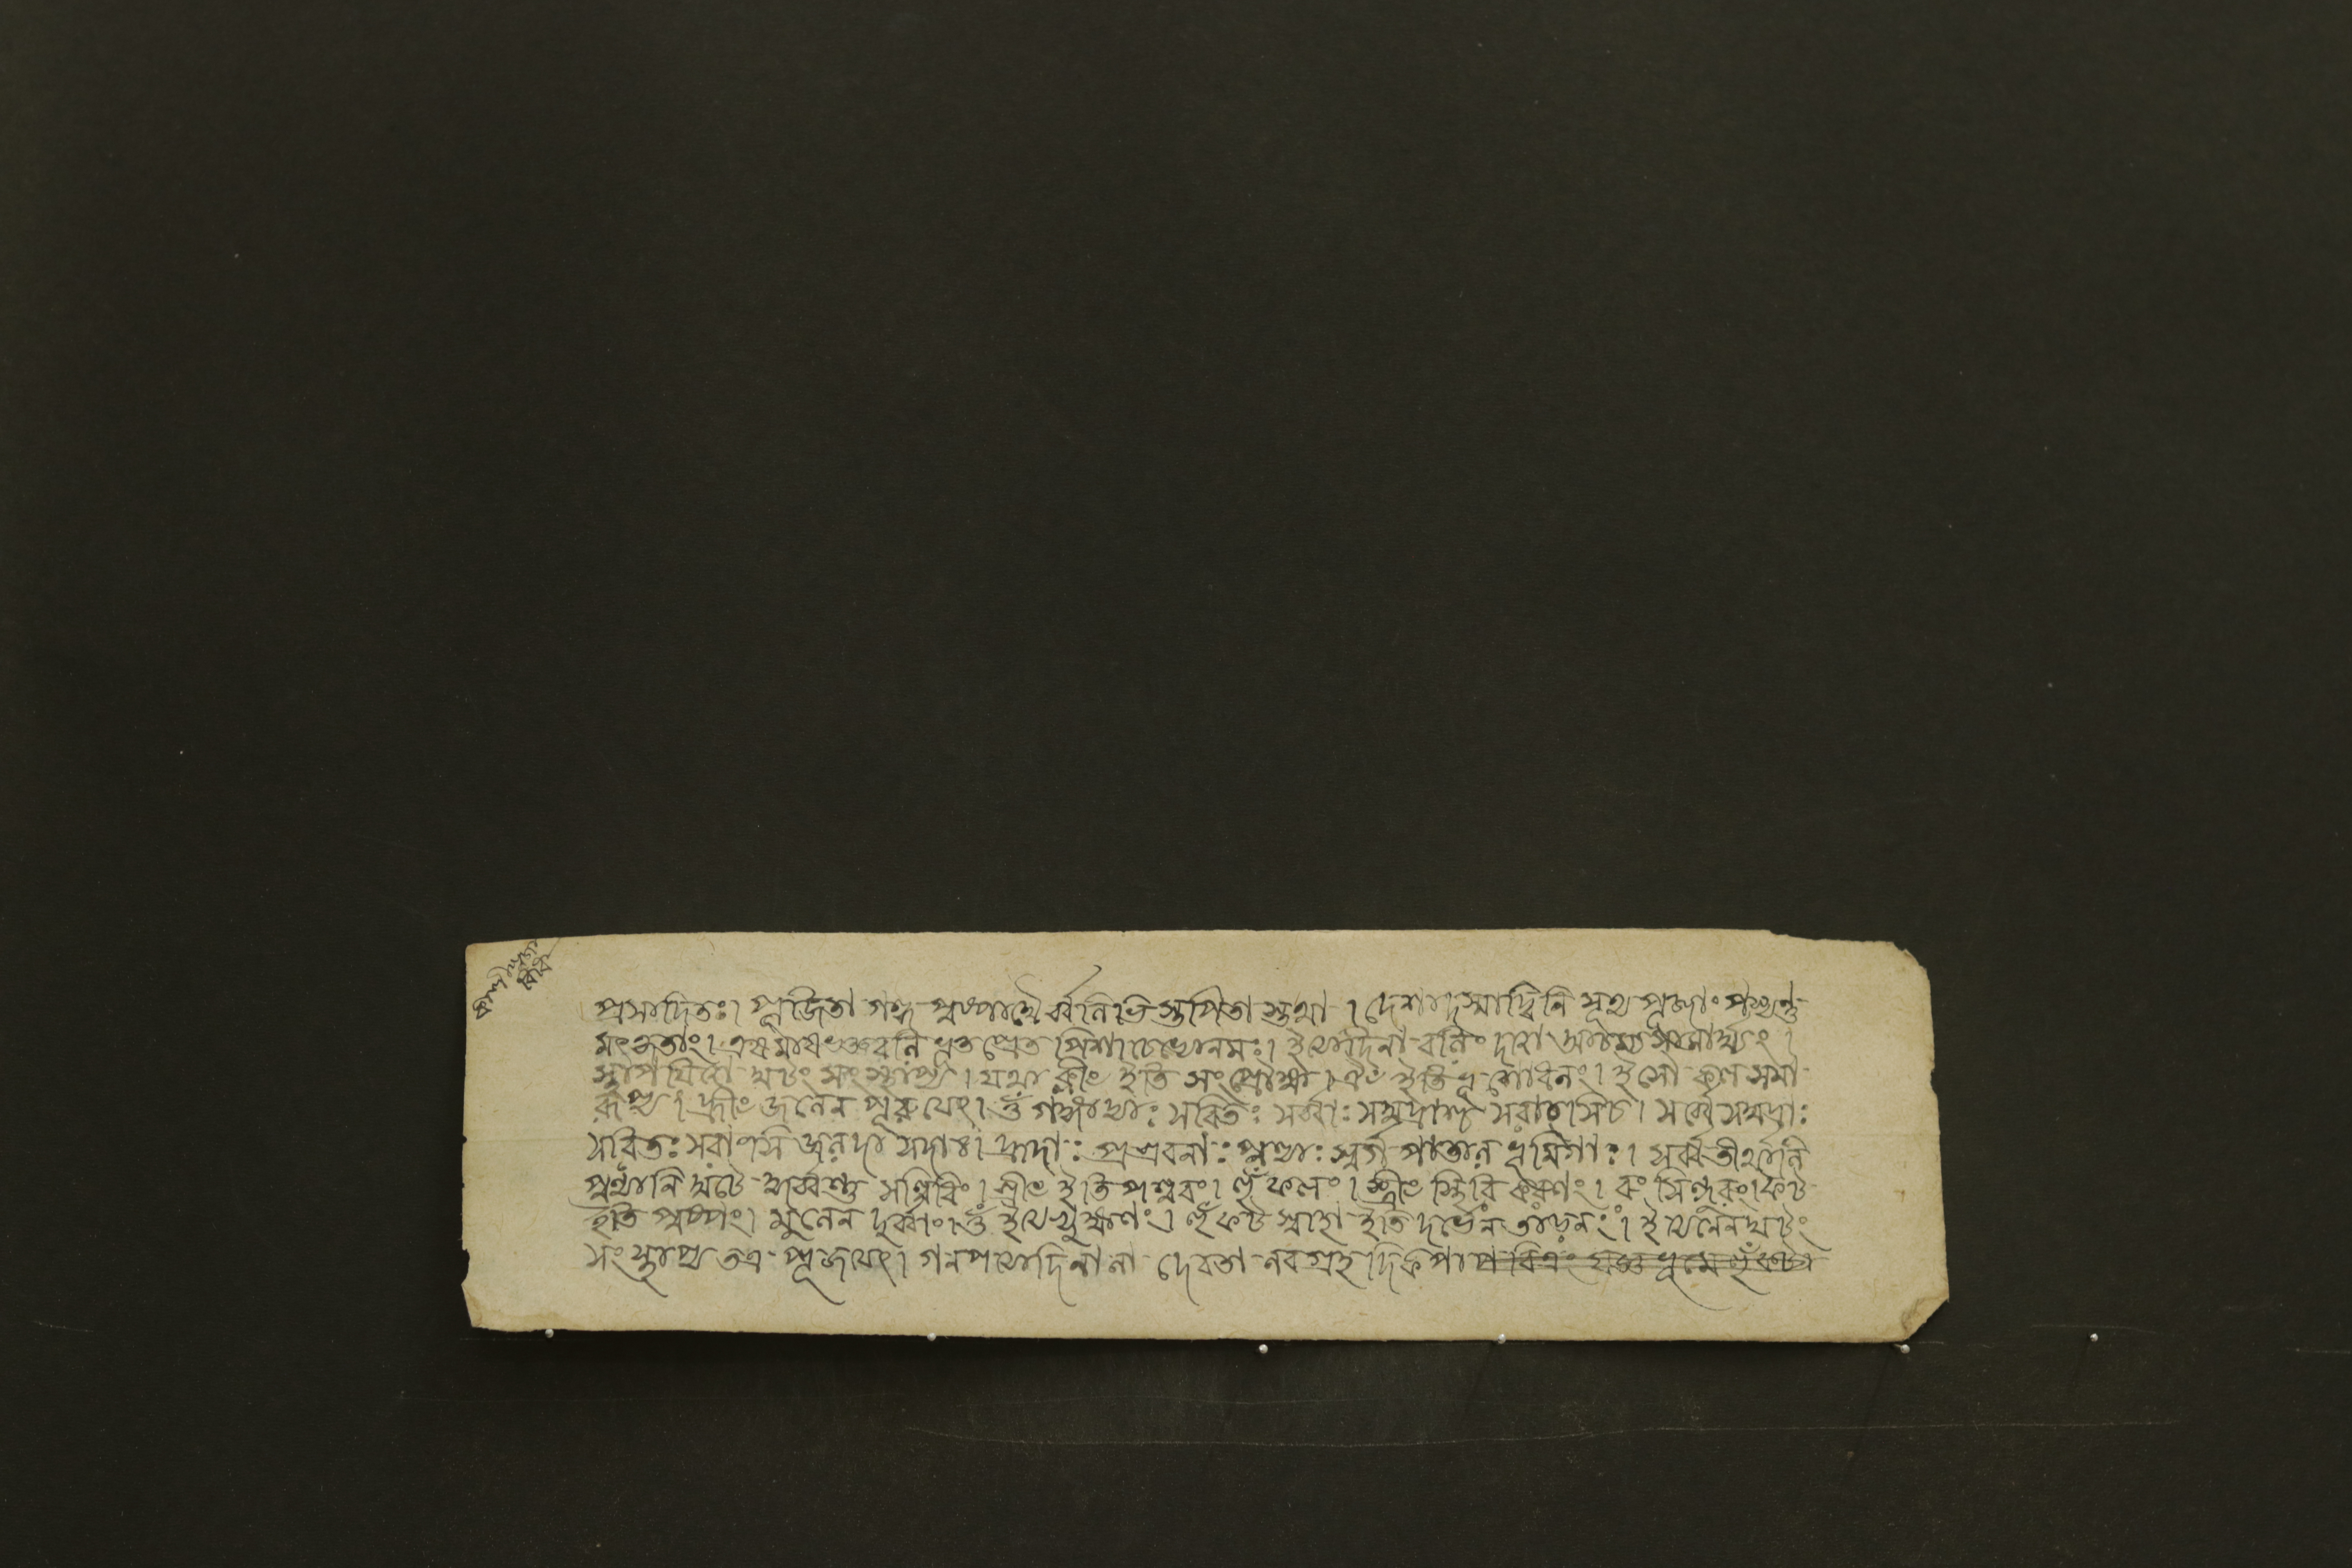 প্রসাদিতঃ। পূজিতা গন্ধ পুষ্পাদ্যৈর্ব্বলিভিস্তর্পিতা স্তথা। দেশাদস্মাদ্বিনিসৃত্য পূজাং পশ্যন্তু
মৎকৃতাং। এষ মাষভক্তবলি ভূত প্রেত পিশাচেভ্যোনমঃ। ইত্যাদিনা বলিং দত্বা
স্থাপয়িত্বা ঘটং সংস্থাপ্য। যথা ক্লীং ইতি সংপ্রোক্ষ্য। ঐং ইতি ভূ শোধনং।
হ্রীং জলেন পূরয়েৎ। ওঁ গঙ্গাদ্যাঃ সরিতঃ সর্ব্বাঃ সমুদ্রাশ্চ সরাংসিচ। সর্ব্বে সমুদ্রাঃ
সরিতঃ সরাংসি জলদা নদাঃ। হ্রদাঃ প্রশ্রবনাঃ পুণ্যাঃ স্বর্গ পাতাল ভূমিগাঃ। সর্ব্বতীর্থানি
পুণ্যানি ঘটে কুর্ব্বন্তু সন্নিধিং। শ্রীং ইতি পল্লবং। হুঁ ফলং। স্ত্রীং স্থিরি করণং। রং সিন্দূরং। ফট
ইতি পুষ্পং। মূলেন দূর্ব্বাং। ওঁ ইত্যভ্যুক্ষণং। হুঁ ফট স্বাহা ইতি দর্ভেন তাড়নং। ইত্যনেন ঘটং
সংস্থাপ্য তত্র পূজয়েৎ। গনপত্যাদি নানা দেবতা নবগ্রহ দিকপা